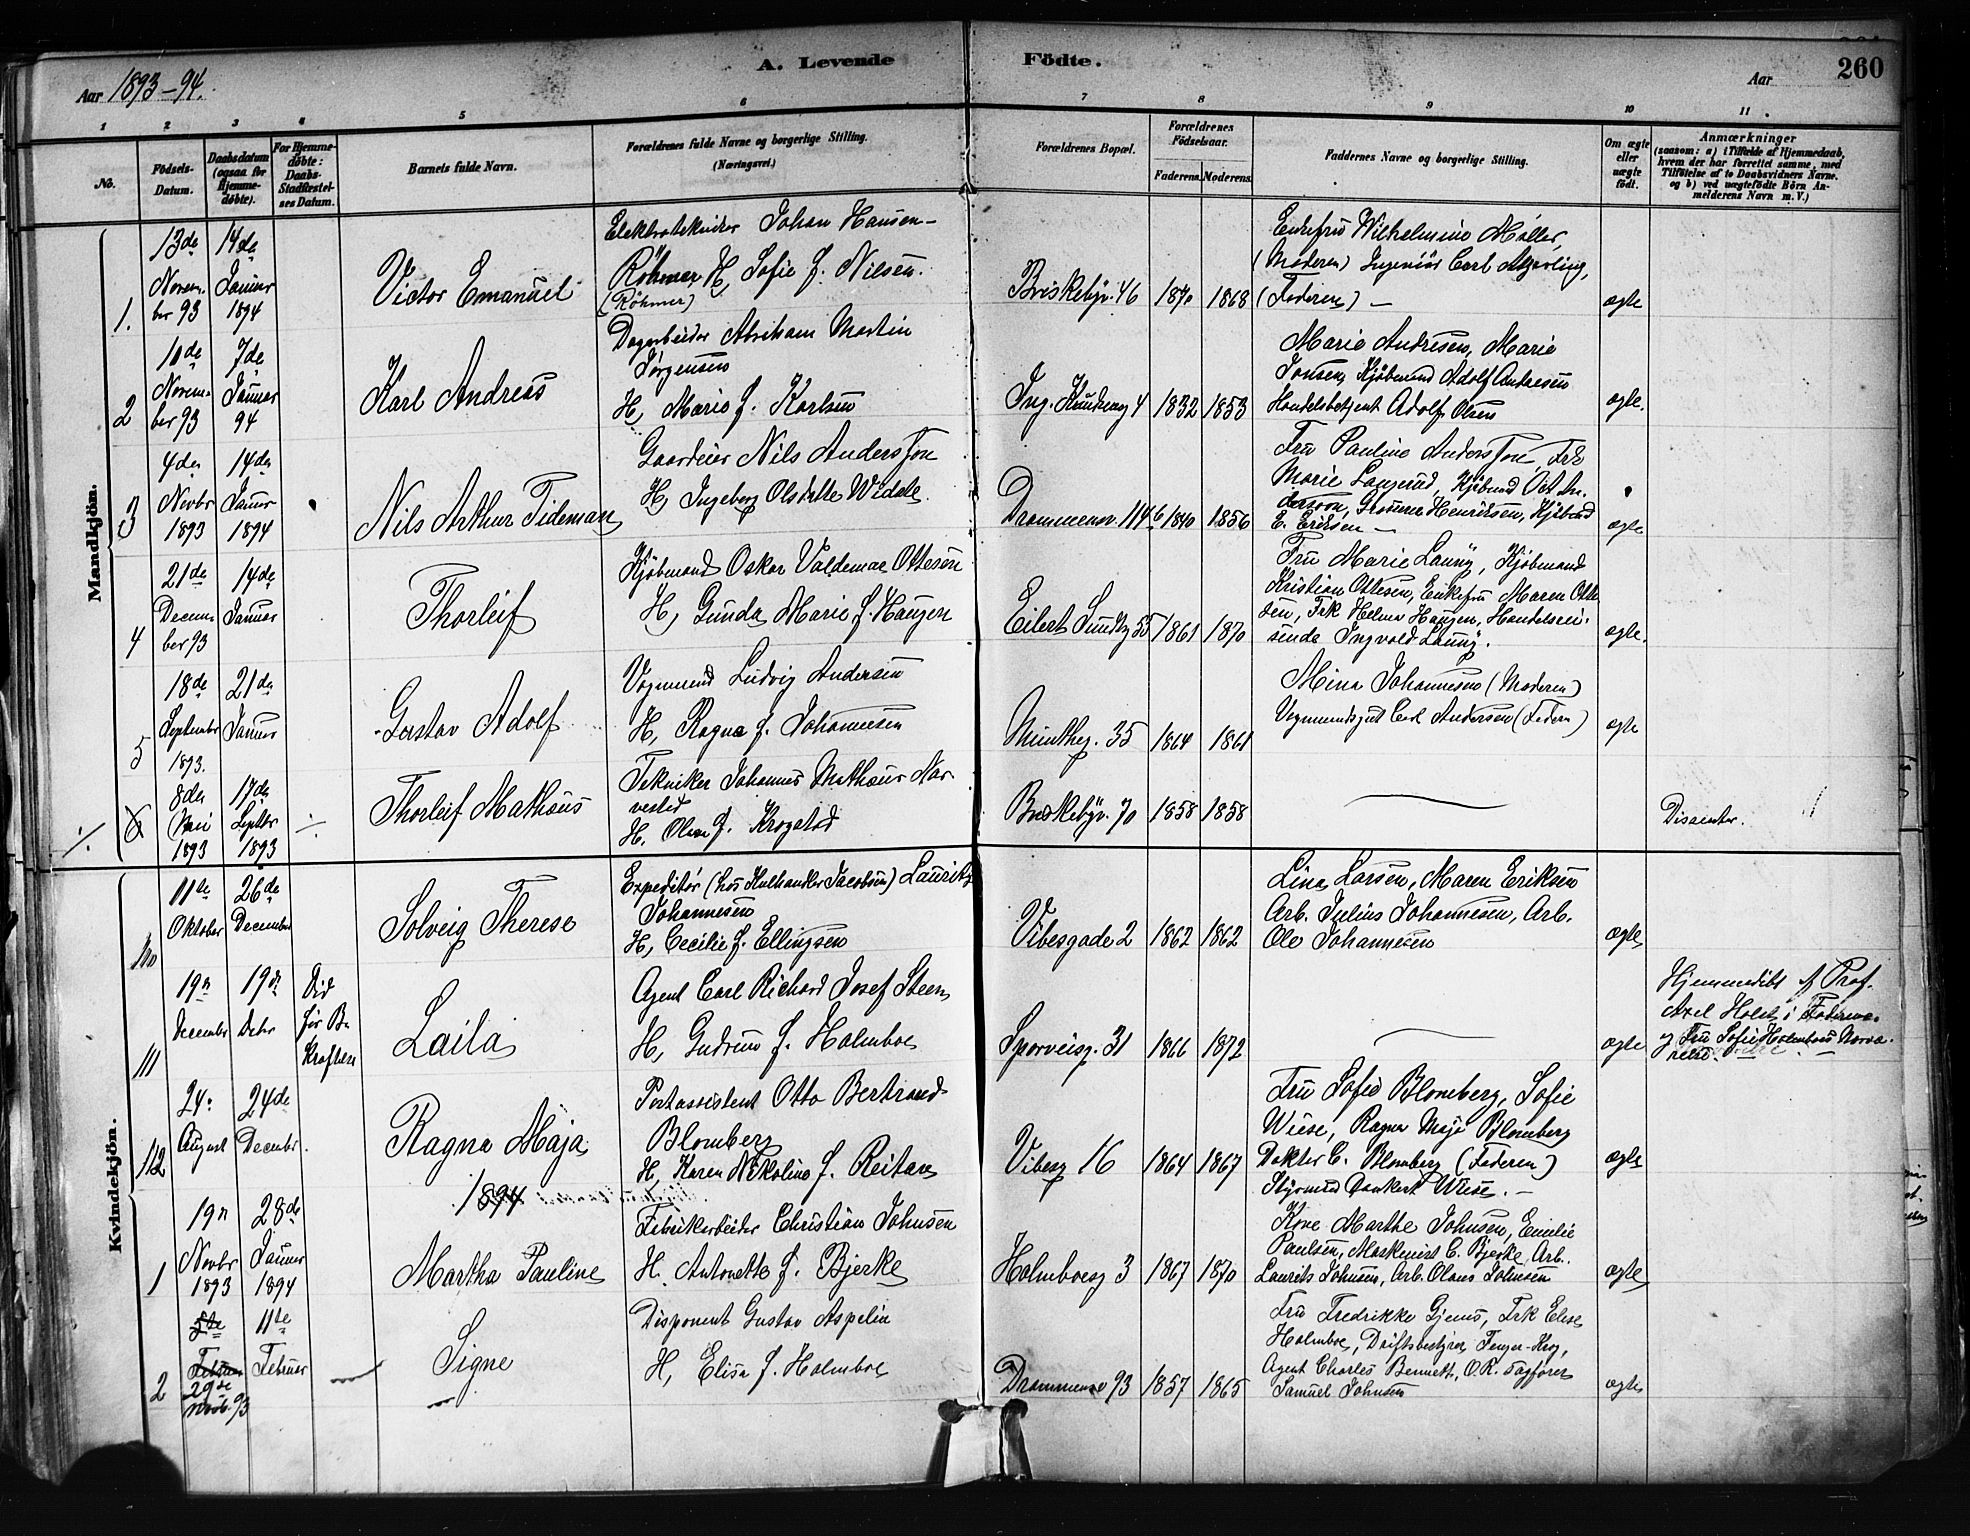 Aar 1893-94.
A. Levende
Födte.
Aar
260
1 2 3 4 5 6 7 8 9 10 11
No.
Födsels-
Datum.
Daabsdatum
(ogsaa for
Hjemme-
døbte).
For Hjemme-
døbte:
Daabs-
Stadfæstel-
ses Datum.
Barnets fulde Navn.
Forældrenes fulde Navne og borgerlige Stilling.
(Næringsvei.)
Forældrenes Bopæl.
Forældrenes
Födselsaar.
Faderens.
Moderens.
Faddernes Navne og borgerlige Stilling.
Om ægte
eller
uægte
født.
Anmærkninger
(saasom: a) i Tilfælde af Hjemmedaab,
hvem der har forrettet samme, med
Tilføielse af to Daabsvidners Navne.
og b) ved uægtefödte Börn An-
melderens Navn m. V.)
Mandkjön.
1.
13de
Novem-
ber 93
14de
Januar
1894
Victor Emanuel
Elektrotekniker Johan Hansen-
Röhmer H, Sofie f. Nilsen.
(Röhmer)
Briskebyv. 46
1870
1868
Enkefru Wilhelmine Møller,
(Moderen) Ingeniör Carl
(Faderen) —
ægte
2
10de
Novem-
ber 93
7de
Januar
94
Karl Andreas
Dagarbeider Abraham Martin
Jörgensen
H, Marie f. Karlsen
Ing. Knudsensg 4
1832
1853
Marie Andresen, Marie
Jonsen, Kjøbmand Adolf Andresen
Handelsbetjent Adolf Olsen
ægte.
3
4de
Novbr
1893
14de
Januar
1894
Nils Arthur Tideman
Gaardeier Nils Andersson
H, Ingeborg Olsdatter Widde.
Drammensv. 114 b
1840
1856
Fru Pauline Andersson, Frk
Marie Langerud, Kjøbmd Oct. An-
dersson, Henriksen, Kjøbmd
E. Eriksen —
ægte
4
21de
Decem-
ber 93
14de
Januar
Thorleif
Kjöbmand Oskar Valdemar Ottesen
H, Gunda Marie f. Haugen
Eilert Sundtsg 35
1861
1870
Fru Marie Launy, Kjøbmand
Kristian Ottesen, Enkefru Maren Otte-
sen, Frk Helma Haugen, Handelsrei-
sende Ingvald Launy.
ægte.
5
18de
September
1893.
21de
Januar
Gustav Adolf
Vognmand Ludvig Andersen
H, Ragna f. Johannesen
Muntheg. 35
1864
1861
Mina Johannesen (Moderen)
Vognmandsgut Carl Andersen (Faderen)
ægte
÷ 6
8de
Mai
1893
17de
Septbr
1893
÷
Thorleif Mathæus
Tekniker Johannes Mathæus Nor-
vested
H. Olea f. Krogstad
Briskebyv. 70
1858
1858
Dissenter.
Kvindekjön.
110
11te
Oktober
26de
December
Solveig Therese
Expeditör (hos Kulhandler Jacobsen) Laurits
Johannesen
H, Cecilie f. Ellingsen
Vibesgade 2
1862
1862
Lina Larsen, Maren Eriksen
Arb. Julius Johannesen, Arb.
Ole Johannesen
ægte
111
19n
December
19de
Decbr
Död
för Be-
kræftelsen
Laila
Agent Carl Richard Josef Steen
H, Gudrun f. Holmboe
Sporveisg. 31
1866
1872
ægte
Hjemmedöbt af Prof.
Axel Holst i
og Fru Sofie Holmboes Nærvæ-
relse.
112
24n
August
24de
Decembr.
Ragna Maja
Postassistent Otto Bertrand
Blomberg
H, Karen Nikoline f. Reitan
Vibesg 16
1864
1867
Fru Sofie Blomberg, Sofie
Wiese, Ragna Maja Blomberg
Doktor C. Blomberg (Faderen)
Styrmand Dankert Wiese. —
ægte
1894
1
19n
Novbr
1893
28de
Januar
1894
Martha Pauline
Fabrikarbeider Christian Johnsen
H. Antonette f. Bjerke
Holmboesg 3
1867
1870
Kone Marthe Johnsen, Emilie
Paulsen, Maskinist C. Bjerke, Arb.
Laurits Johnsen, Arb. Olaus Johnsen
ægte
2
5te
Februar
29de
Novb. 93
11te
Februar
Signe
Disponent Gustav Aspelin
H, Elisa f. Holmboe
Drammensv 93
1857
1865
Fru Fredrikke Gjems, Frk Elise
Holmboe, Driftsbestyrer Fenger-Krog,
Agent Charles Bennett, O.R. Sagförer
Samuel Johnsen
ægte